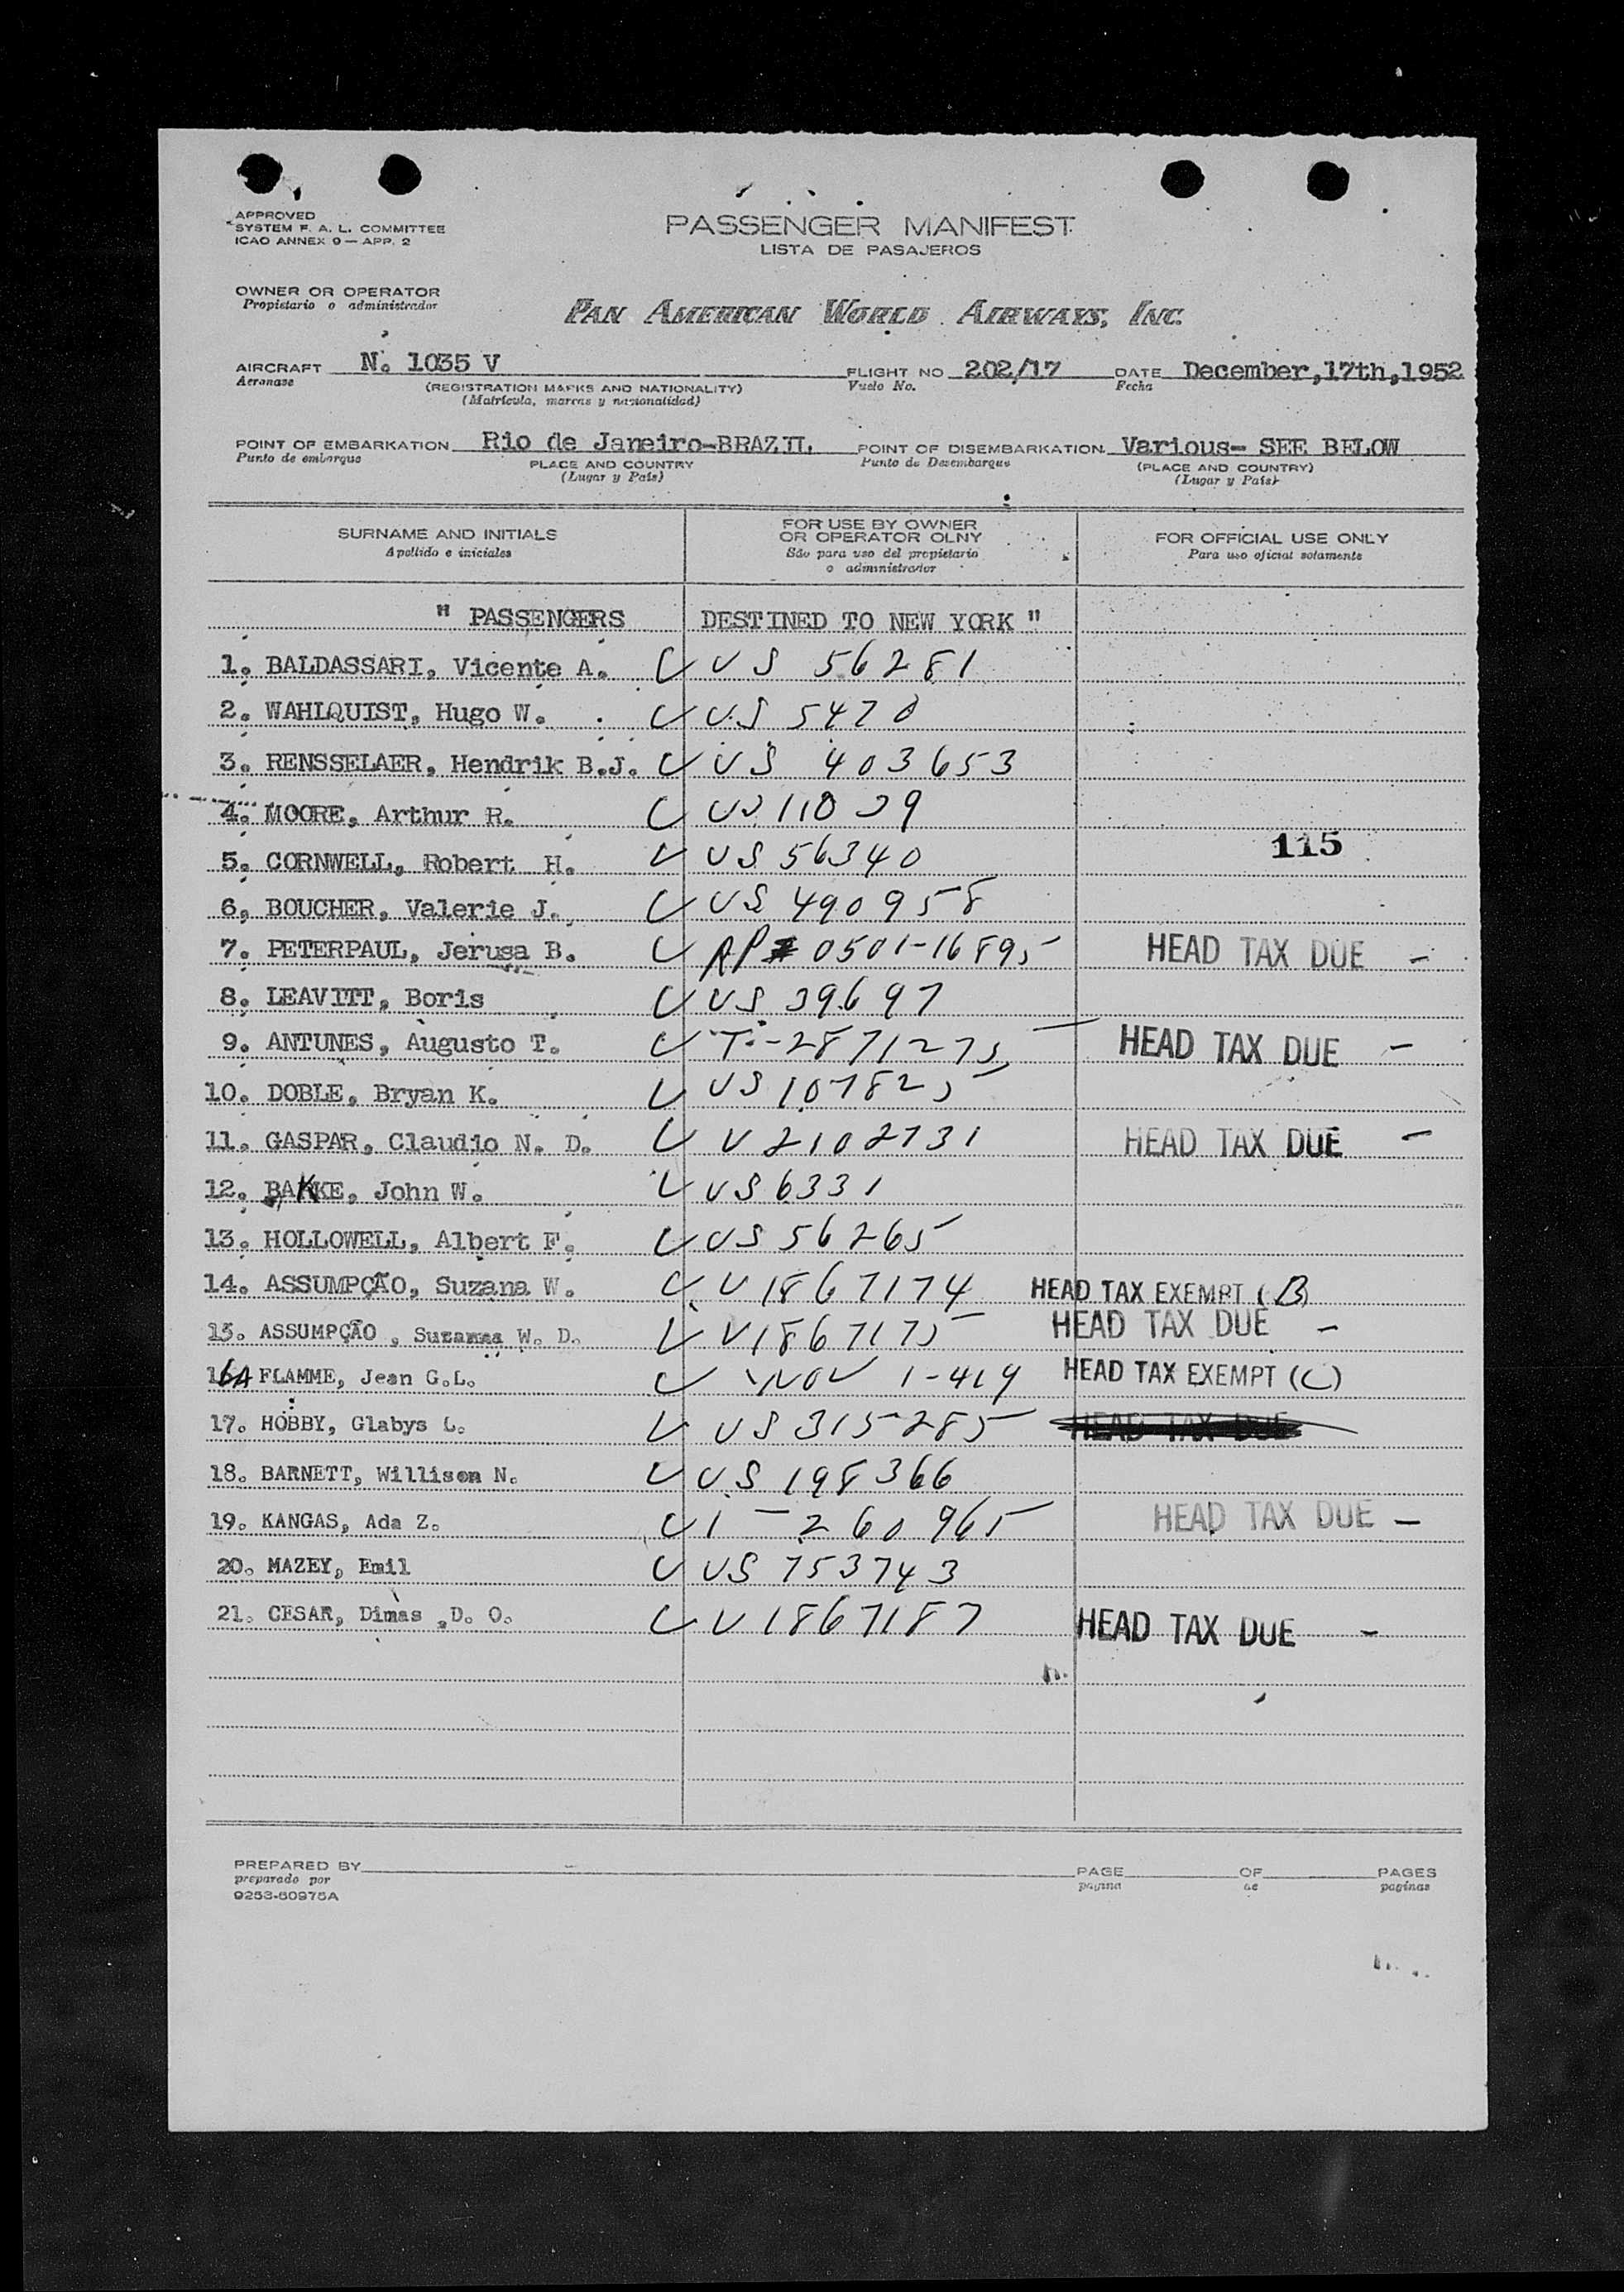 APPROVED
SYSTEM F. A. L. COMMITTEE
ICAO ANNEX 9 — APP. 2
PASSENGER MANIFEST
LISTA DE PASAJEROS
OWNER OR OPERATOR
Propietario o administrador
PAN AMERICAN WORLD AIRWAYS, INC.
AIRCRAFT N. 1035 V FLIGHT NO 202/17 DATE December,17th,1952
Aeronase (REGISTRATION MARKS AND NATIONALITY) Vuelo No. Fecha
(Matrícula, marcas y nasionalidad)
POINT OF EMBARKATION Rio de Janeiro-BRAZIL POINT OF DISEMBARKATION Various- SEE BELOW
Punto de embarque PLACE AND COUNTRY Punto de Desembarque (PLACE AND COUNTRY)
(Lugar y País) (Lugar y País)
SURNAME AND INITIALS FOR USE BY OWNER OR OPERATOR OLNY FOR OFFICIAL USE ONLY
Apellido e iniciales São para uso del propietario o administrador Para uso oficial solamente
" PASSENGERS DESTINED TO NEW YORK "
1. BALDASSARI, Vicente A. US 56281
2. WAHLQUIST, Hugo W. US 5470
3. RENSSELAER, Hendrik B.J. US 403653
4. MOORE, Arthur R. US 11039
115
5. CORNWELL, Robert H. US 56340
6. BOUCHER, Valerie J. US 490958
7. PETERPAUL, Jerusa B. AP# 0501-16895 HEAD TAX DUE -
8. LEAVITT, Boris US 39697
9. ANTUNES, Augusto T. T-2871275 HEAD TAX DUE -
10. DOBLE, Bryan K. US 107825
11. GASPAR, Claudio N. D. V 2102731 HEAD TAX DUE -
12. BAKKE, John W. US 6331
13. HOLLOWELL, Albert F. US 56265
14. ASSUMPÇÃO, Suzana W. V 1867174 HEAD TAX EXEMPT (B)
15. ASSUMPÇÃO , Suzanna W. D. V 1867175 HEAD TAX DUE -
16A FLAMME, Jean G.L. 1-419 HEAD TAX EXEMPT (C)
17. HOBBY, Glabys L. US 315285 HEAD TAX DUE
18. BARNETT, Willison N. US 198366
19. KANGAS, Ada Z. I-260965 HEAD TAX DUE -
20. MAZEY, Emil US 753743
21. CESAR, Dimas D. O. V 1867187 HEAD TAX DUE -
PREPARED BY PAGE OF PAGES
preparado por pagina de paginas
9253-50975A